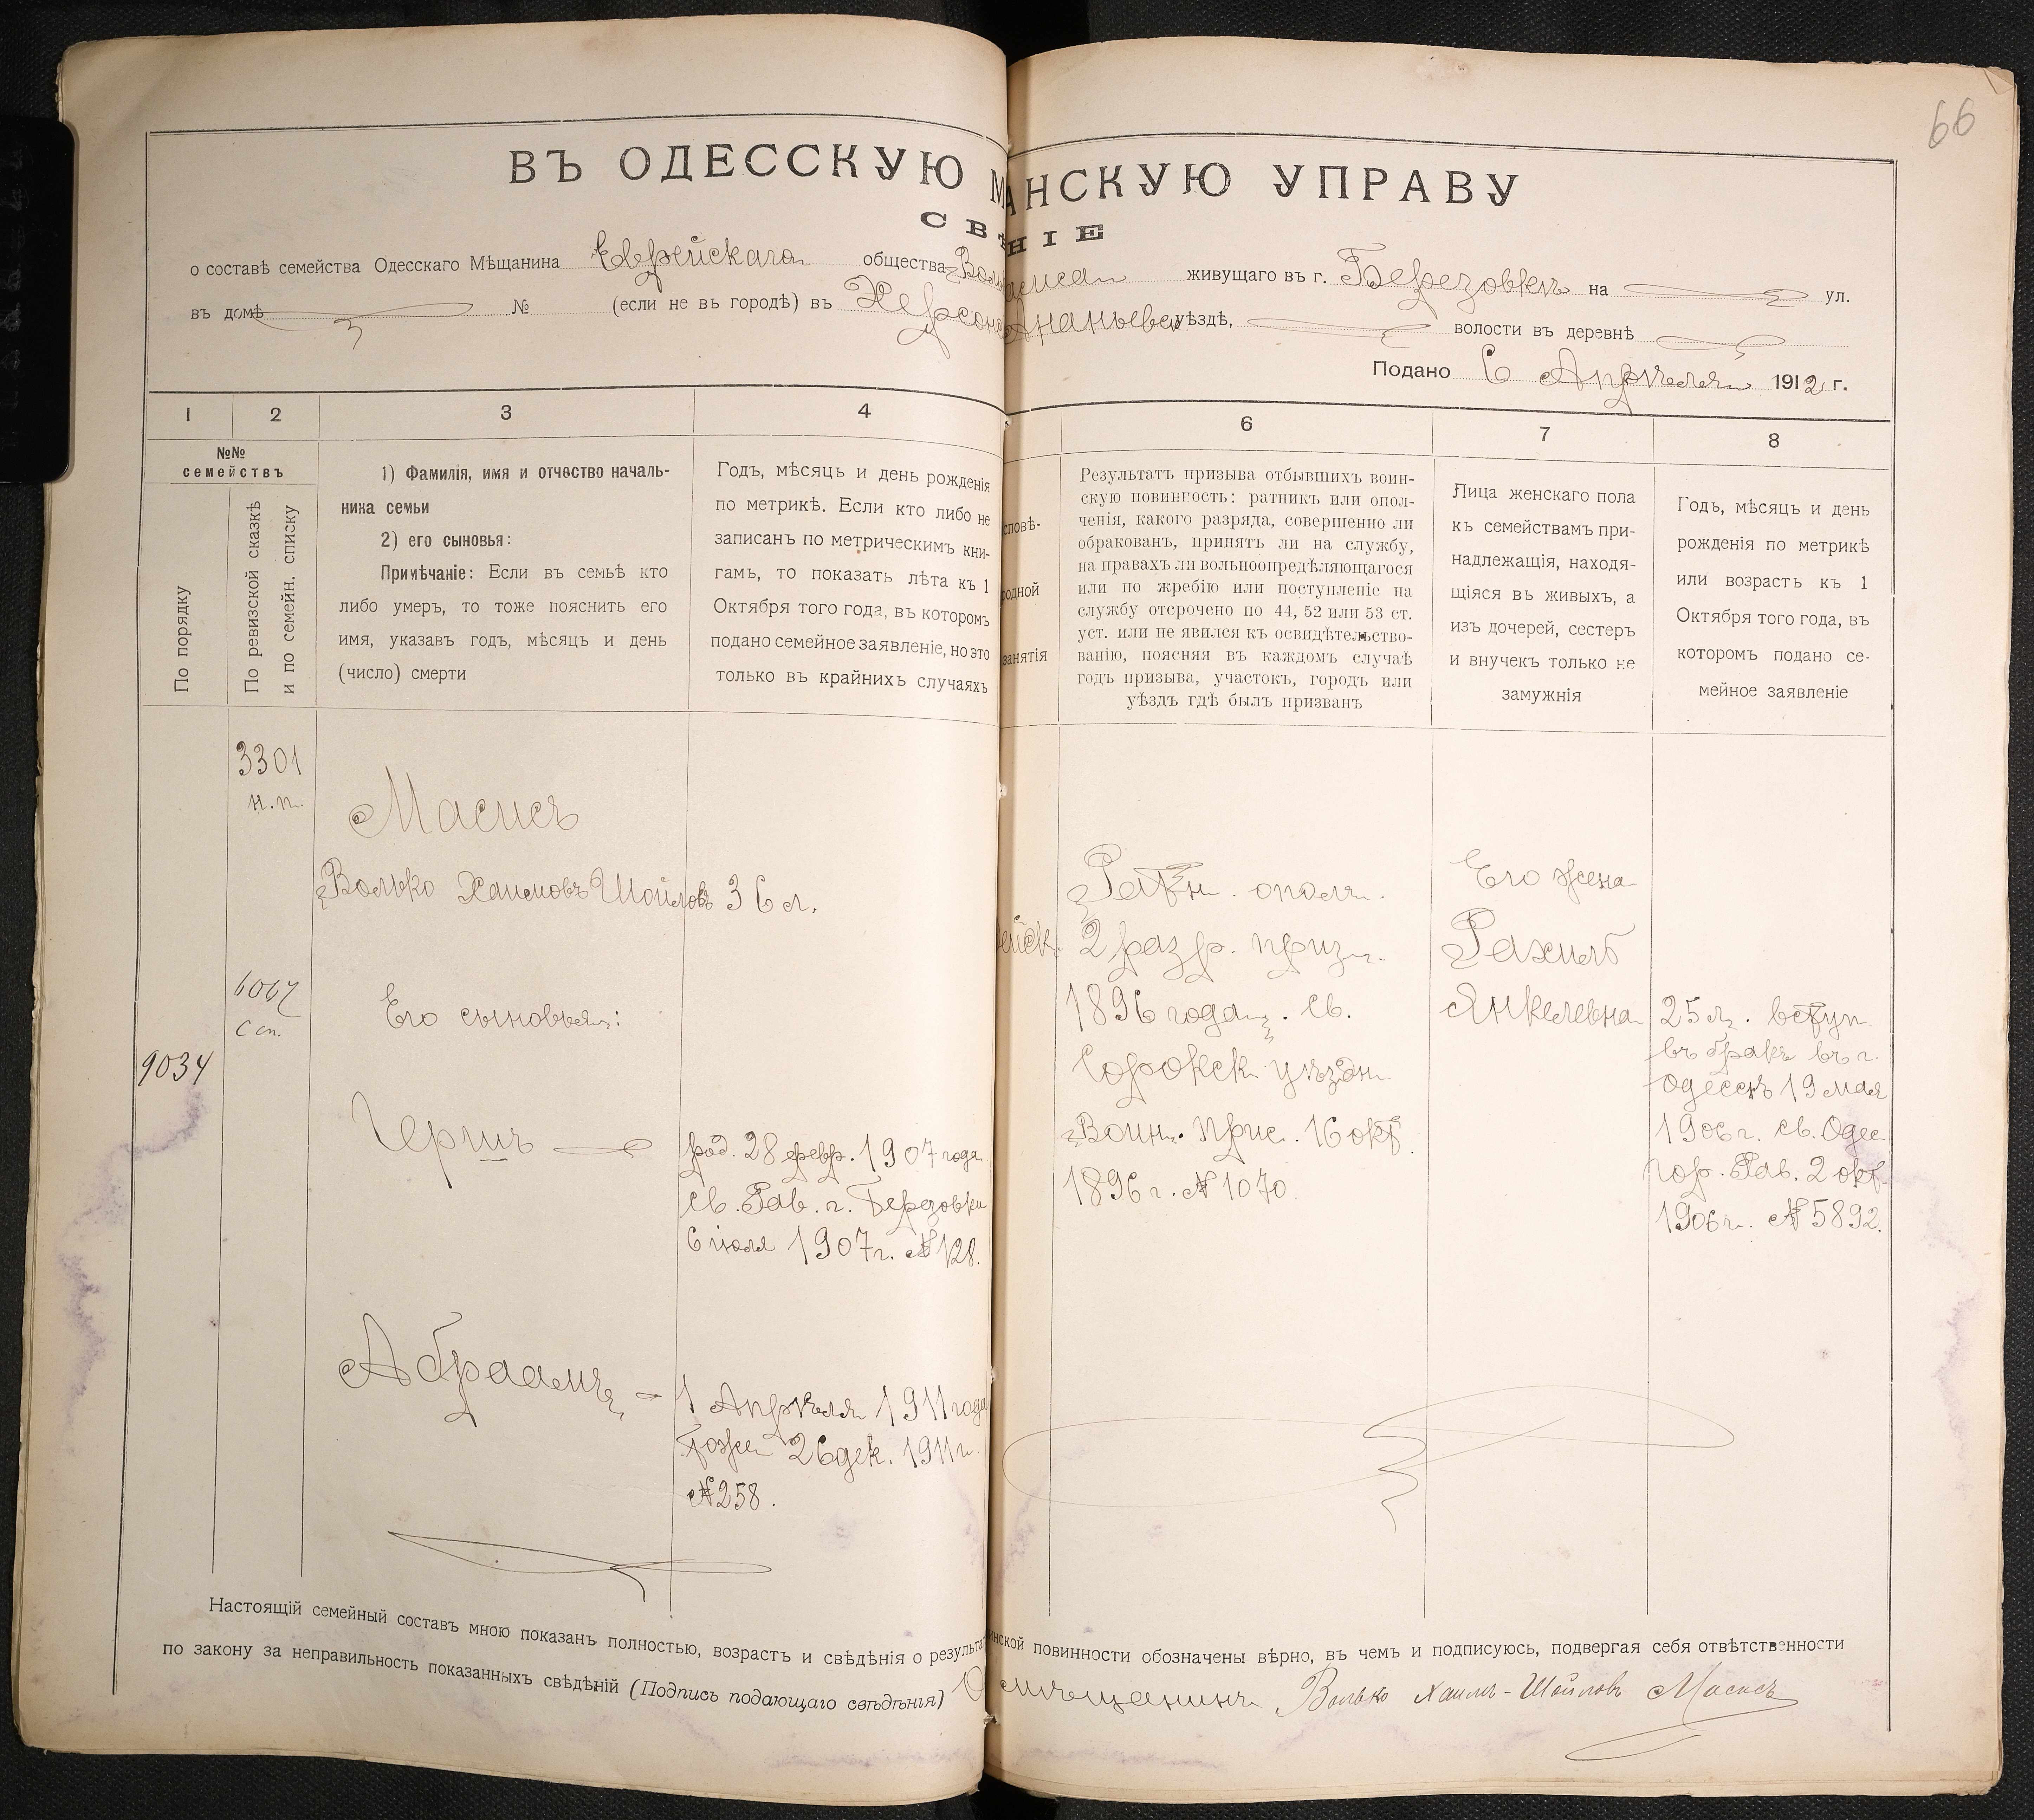 66
ВЪ ОДЕССКУЮ М АНСКУЮ УПРАВУ
СВѢ НІЕ
о составѣ семейства Одесскаго Мѣщанина Еврейскаго общества Воль Масиса живущаго въ г. Березовкѣ на ул.
въ домѣ № (если не въ городѣ) въ Херсонс Ананьевс уѣздѣ, волости въ деревнѣ
Подано 6 Апрѣля 1912 г.
1 2 3 4 6 7 8
№№
семействъ
По порядку
По ревизской сказкѣ
и по семейн. списку
1) Фамилія, имя и отчество началь-
ника семьи
2) его сыновья:
Примѣчаніе: Если въ семьѣ кто
либо умеръ, то тоже пояснить его
имя, указавъ годъ, мѣсяцъ и день
(число) смерти
Годъ, мѣсяцъ и день рожденія
по метрикѣ. Если кто либо не
записанъ по метрическимъ кни-
гамъ, то показать лѣта къ 1
Октября того года, въ которомъ
подано семейное заявленіе, но это
только въ крайнихъ случаяхъ
сповѣ-
родной
занятія
Результатъ призыва отбывшихъ воин-
скую повинность: ратникъ или опол-
ченія, какого разряда, совершенно ли
обракованъ, принятъ ли на службу,
на правахъ ли вольноопредѣляющагося
или по жребію или поступленіе на
службу отсрочено по 44, 52 или 53 ст.
уст. или не явился къ освидѣтельство-
ванію, поясняя въ каждомъ случаѣ
годъ призыва, участокъ, городъ или
уѣздъ гдѣ былъ призванъ
Лица женскаго пола
къ семействамъ при-
надлежащія, находя-
щіяся въ живыхъ, а
изъ дочерей, сестеръ
и внучекъ только не
замужнія
Годъ, мѣсяцъ и день
рожденія по метрикѣ
или возрастъ къ 1
Октября того года, въ
которомъ подано се-
мейное заявленіе
3301
н. п.
6067
с сп.
9034
Масисъ
Волько Хаимовъ Шойловъ 36 л.
Его сыновья:
Гершъ
род. 28 февр. 1907 года
св. Рав. г. Березовки
6 іюля 1907 г. № 128.
Абраамъ
1 Апрѣля 1911 года
тоже 26 дек. 1911 г.
№ 258.
ейск.
Ратн. ополч.
2 разр. приз.
1896 года. св.
Сорокск. уѣздн.
Воин. Прис. 16 окт.
1896 г. № 1070.
Его жена
Рахиль
Янкелевна
25 л. вступ.
въ бракъ въ г.
Одессѣ 19 мая
1906 г. св. Одес.
гор. Рав. 2 окт.
1906 г. № 5892.
Настоящій семейный составъ мною показанъ полностью, возрастъ и свѣдѣнія о результат инской повинности обозначены вѣрно, въ чемъ и подписуюсь, подвергая себя отвѣтственности
по закону за неправильность показанныхъ свѣдѣній (Подпись подающаго свѣдѣнія) О мѣщанинъ Волько Хаимъ-Шойловъ Масисъ